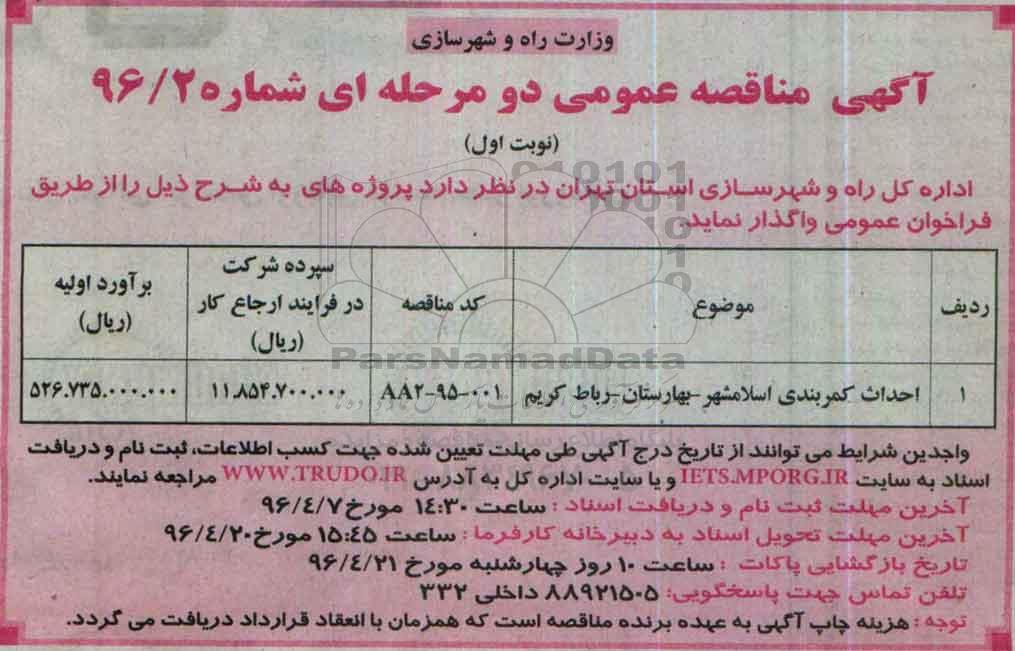 وزارت راه و شهرسازی
آگهی مناقصه عمومی دو مرحله ای شماره ۹۶/۲
(نوبت اول)
اداره کل راه و شهرسازی استان تهران در نظر دارد پروژه های به شرح ذیل را از طریق
فراخوان عمومی واگذار نماید.
ردیف موضوع کد مناقصه سپرده شرکت در فرایند ارجاع کار (ریال) برآورد اولیه (ریال)
۱ احداث کمربندی اسلامشهر-بهارستان-رباط کریم AA۲-۹۵-۰۰۱ ۱۱.۸۵۴.۷۰۰.۰۰۰ ۵۲۶.۷۳۵.۰۰۰.۰۰۰
واجدین شرایط می توانند از تاریخ درج آگهی طی مهلت تعیین شده جهت کسب اطلاعات، ثبت نام و دریافت
اسناد به سایت IETS.MPORG.IR و یا سایت اداره کل به آدرس WWW.TRUDO.IR مراجعه نمایند.
آخرین مهلت ثبت نام و دریافت اسناد : ساعت ۱۴:۳۰ مورخ ۹۶/۴/۷
آخرین مهلت تحویل اسناد به دبیرخانه کارفرما : ساعت ۱۵:۴۵ مورخ ۹۶/۴/۲۰
تاریخ بازگشایی پاکات : ساعت ۱۰ روز چهارشنبه مورخ ۹۶/۴/۲۱
تلفن تماس جهت پاسخگویی: ۸۸۹۲۱۵۰۵ داخلی ۳۳۲
توجه : هزینه چاپ آگهی به عهده برنده مناقصه است که همزمان با انعقاد قرارداد دریافت می گردد.
ParsNamadData